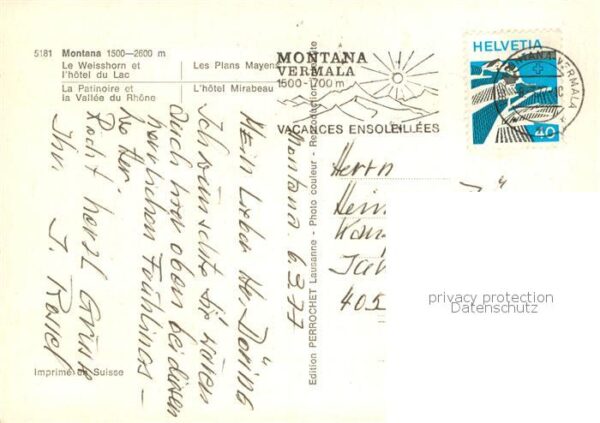 5181 Montana 1500—2600 m
Le Weisshorn et
l'hôtel du Lac
Les Plans Mayens
La Patinoire et
la Vallée du Rhône
L'hôtel Mirabeau
MONTANA
VERMALA
1500-1700 m
VACANCES ENSOLEILLÉES
HELVETIA
40
MONTANA-VERMALA
Montana 6.3.77
Mein lieber Hr. Döring
Ich wünschte Sie wären
auch hier oben bei diesem
herrlichen Frühlings-
wetter.
Recht herzl. Grüsse
Ihr J.
Edition PERROCHET Lausanne - Photo couleur - Reproduction
Herrn
405
privacy protection
Datenschutz
Imprimé en Suisse